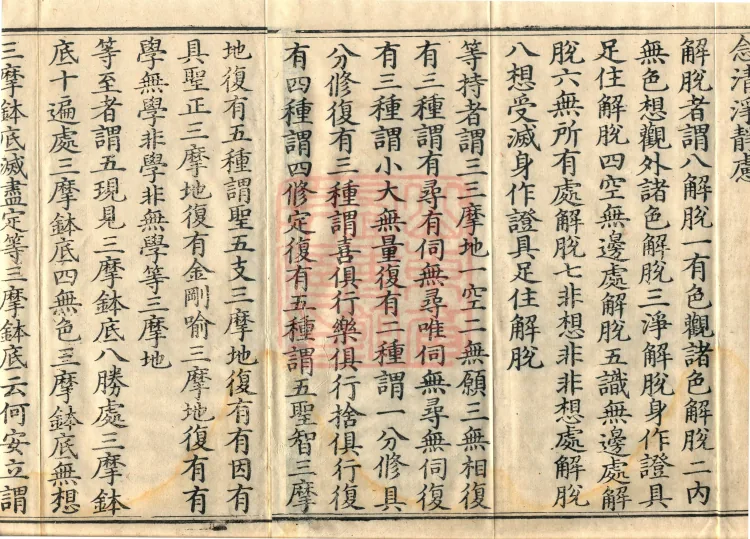 念清淨靜慮
解脫者謂八解脫一有色觀諸色解脫二內
無色想觀外諸色解脫三淨解脫身作證具
足住解脫四空無邊處解脫五識無邊處解
脫六無所有處解脫七非想非非想處解脫
八想受滅身作證具足住解脫
等持者謂三三摩地一空二無願三無相復
有三種謂有尋有伺無尋唯伺無尋無伺復
有三種謂小大無量復有二種謂一分修具
分修復有三種謂喜俱行樂俱行捨俱行復
有四種謂四修定復有五種謂五聖智三摩
地復有五種謂聖五支三摩地復有有因有
具聖正三摩地復有金剛喻三摩地復有有
學無學非學非無學等三摩地
等至者謂五現見三摩鉢底八勝處三摩鉢
底十遍處三摩鉢底四無色三摩鉢底無想
三摩鉢底滅盡定等三摩鉢底云何安立謂